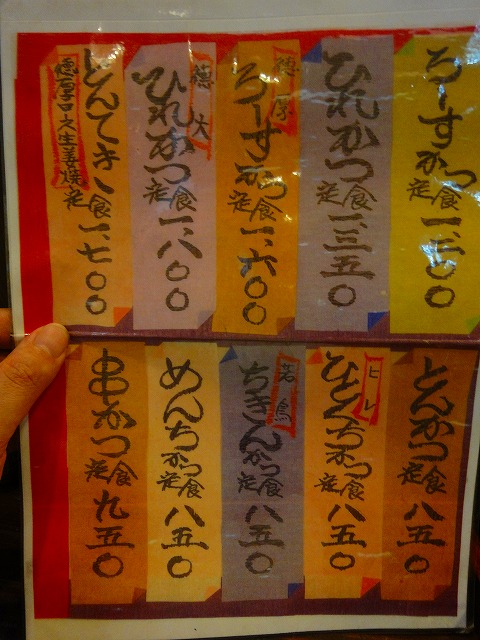 ろーすかつ定食 一、二〇〇
ひれかつ定食 一、三五〇
徳厚
ろーすかつ定食 一、六〇〇
徳大
ひれかつ定食 一、八〇〇
とんてき定食 一、七〇〇
徳厚ロース生姜焼
とんかつ定食 八五〇
ヒレ
ひとくちかつ定食 八五〇
若鳥
ちきんかつ定食 八五〇
めんちかつ定食 八五〇
串かつ定食 九五〇